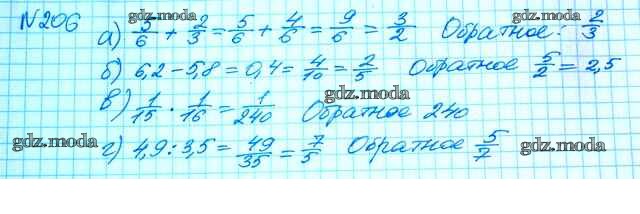 №206 gdz.moda gdz.moda
а) 5/6 + 2/3 = 5/6 + 4/6 = 9/6 = 3/2 Обратное: 2/3
б) 6,2 - 5,8 = 0,4 = 4/10 = 2/5 Обратное 5/2 = 2,5
gdz.moda
в) 1/15 · 1/16 = 1/240 Обратное 240
gdz.moda gdz.moda
г) 4,9 : 3,5 = 49/35 = 7/5 Обратное 5/7
gdz.moda